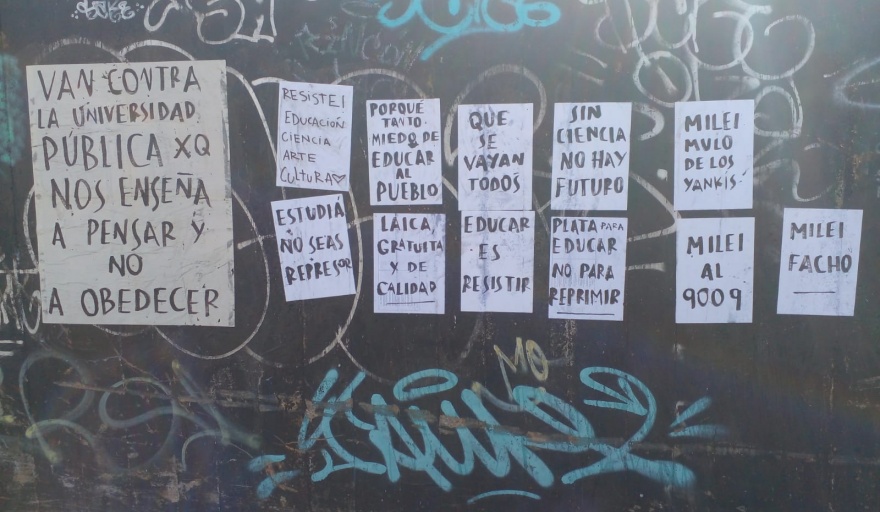 VAN CONTRA
LA UNIVERSIDAD
PÚBLICA XQ
NOS ENSEÑA
A PENSAR Y
NO
A OBEDECER
RESISTE!
EDUCACIÓN
CIENCIA
ARTE
CULTURA♡
ESTUDIÁ
NO SEAS
REPRESOR
PORQUÉ
TANTO
MIEDO DE
EDUCAR
AL
PUEBLO
LAICA,
GRATUITA
Y DE
CALIDAD
QUE
SE
VAYAN
TODOS
EDUCAR
ES
RESISTIR
SIN
CIENCIA
NO HAY
FUTURO
PLATA PARA
EDUCAR
NO PARA
REPRIMIR
MILEI
MULO
DE LOS
YANKIS
MILEI
AL
9009
MILEI
FACHO
MO